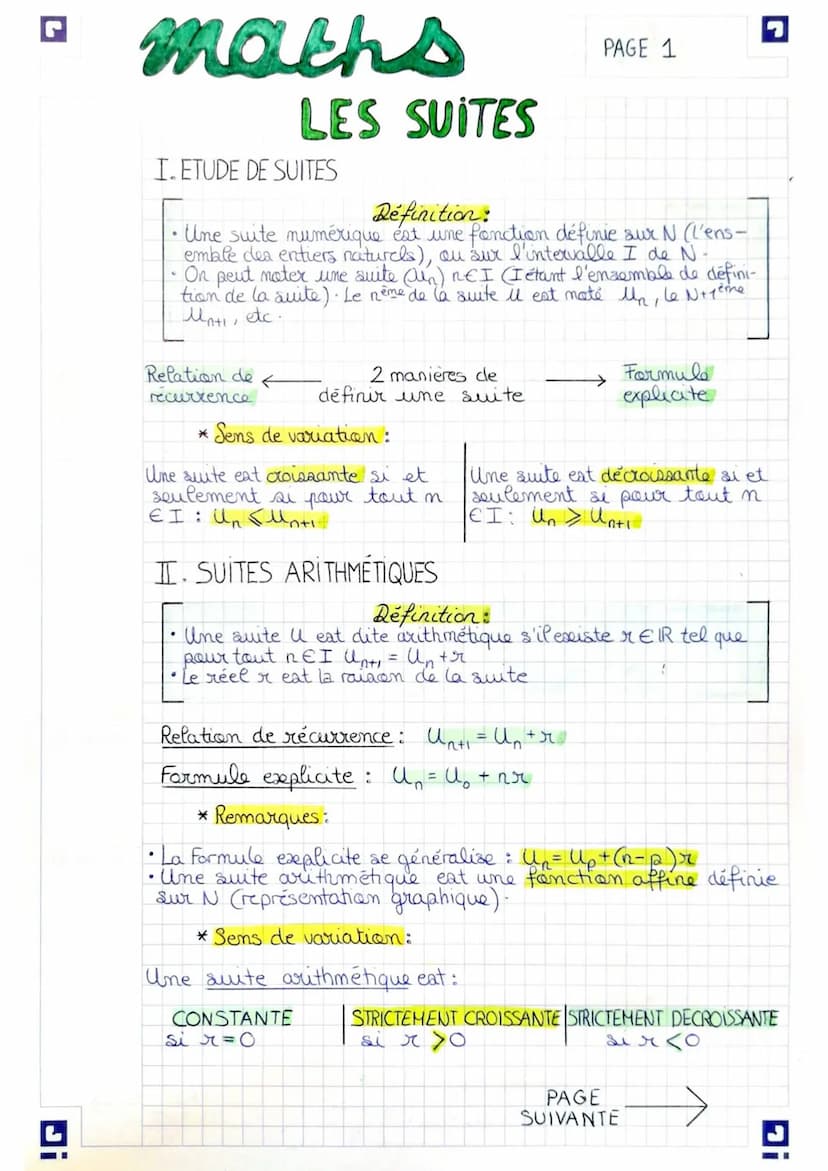 maths
PAGE 1
LES SUITES
I. ETUDE DE SUITES
Définition :
• Une suite numérique est une fonction définie sur N (l'ens-
emble des entiers naturels), ou sur l'intervalle I de N.
• On peut noter une suite (Un) n∈I (I étant l'ensemble de défini-
tion de la suite). Le nème de la suite U est noté Un, le N+1ème
Un+1, etc.
Relation de
récurrence
← 2 manières de →
définir une suite
Formule
explicite
* Sens de variation :
Une suite est croissante si et
seulement si pour tout n
∈ I : Un ⩽ Un+1
Une suite est décroissante si et
seulement si pour tout n
∈ I : Un ⩾ Un+1
II. SUITES ARITHMÉTIQUES
Définition :
• Une suite U est dite arithmétique s'il existe r ∈ IR tel que
pour tout n ∈ I Un+1 = Un + r
• Le réel r est la raison de la suite
Relation de récurrence : Un+1 = Un + r
Formule explicite : Un = U0 + nr
* Remarques :
• La Formule explicite se généralise : Un = Up + (n-p) r
• Une suite arithmétique est une fonction affine définie
sur N (représentation graphique).
* Sens de variation :
Une suite arithmétique est :
CONSTANTE
si r = 0
STRICTEMENT CROISSANTE
si r > 0
STRICTEMENT DECROISSANTE
si r < 0
PAGE
SUIVANTE →